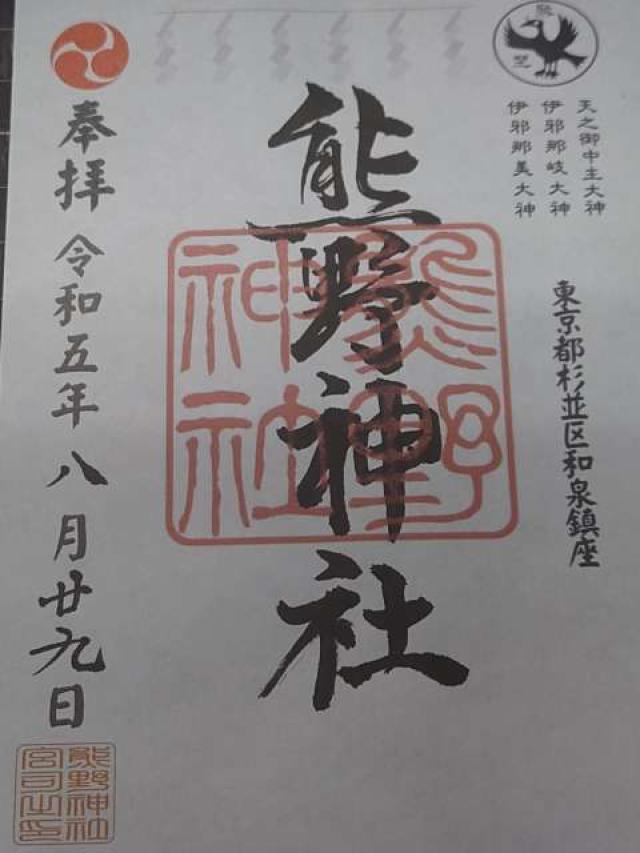 天之御中主大神
伊邪那岐大神
伊邪那美大神
東京都杉並区和泉鎮座
熊野神社
熊野
神社
奉拝
令和五年八月廿九日
熊野神社
宮司之印